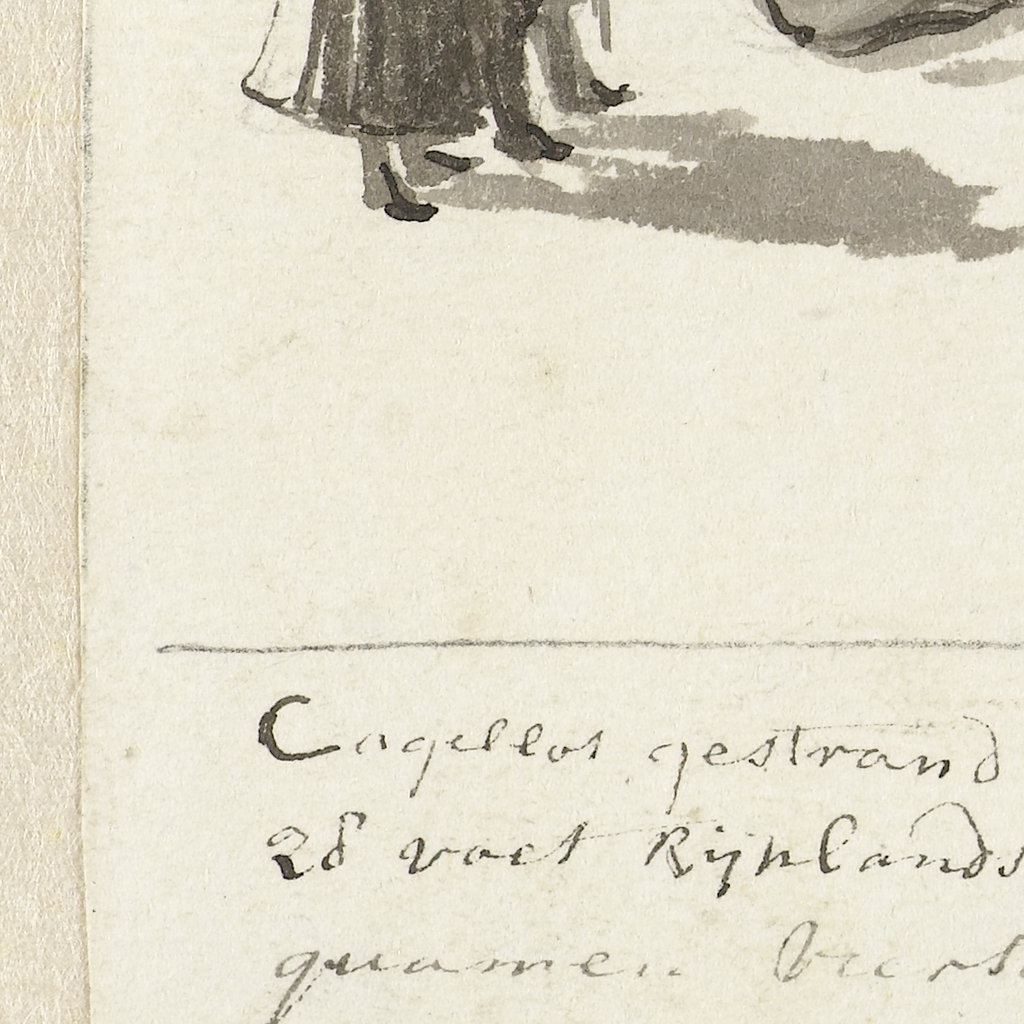 Cagellot gestrand
28 voet Rijnlands
quamen